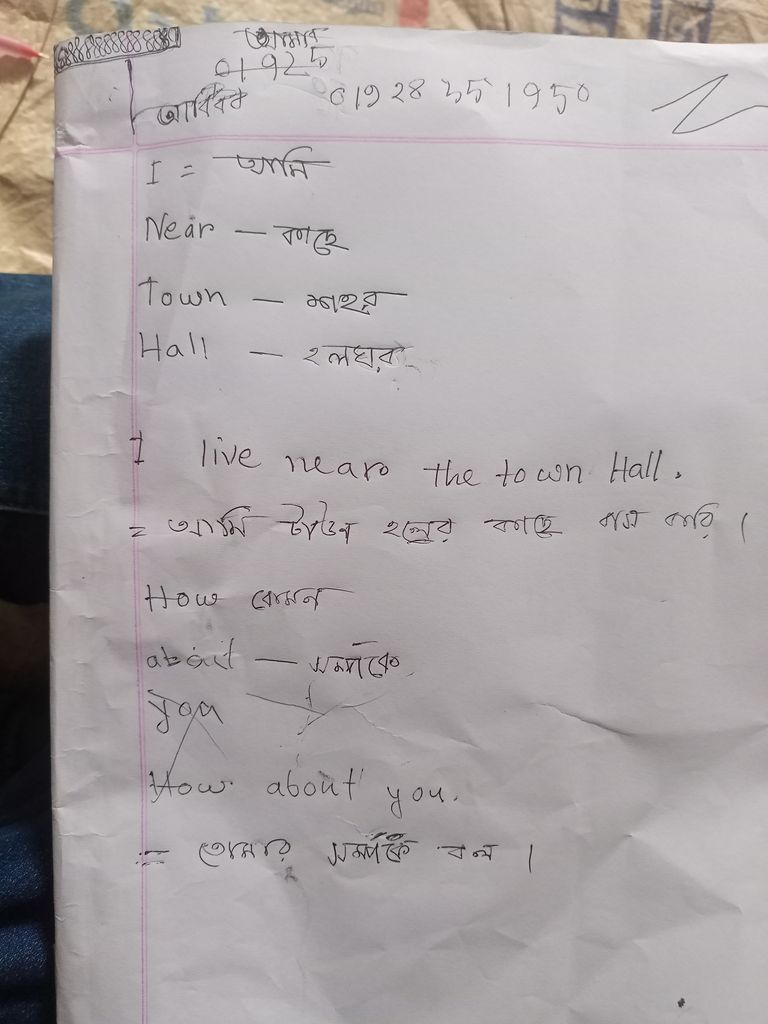 আমার
01925
আবিবর 01928351950
I = আমি
Near — কাছে
Town — শহর
Hall — হলঘর
I live near the town Hall.
= আমি টাউন হলের কাছে বাস করি।
How কেমন
about — সম্পর্কে
you
How about you.
= তোমার সম্পর্কে বল।